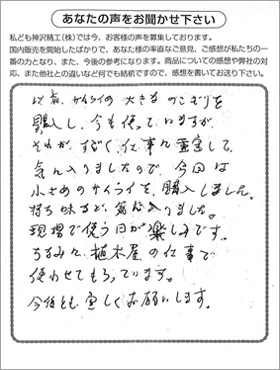 あなたの声をお聞かせ下さい
私ども神沢精工(株)では今、お客様の声を募集しております。
国内販売を開始したばかりで、あなた様の率直なご意見、ご感想が私たちの一
番の力となり、また、今後の参考になります。商品についての感想や弊社の対
応、また他社との違いなど何でも結構ですので、感想を書いてお送り下さい。
以前、サムライの大きなのこぎりを
購入し、今も使っていますが、
それが、すごく仕事に重宝して、
気に入りましたので、今回は
小さめのサムライを購入しました。
持ち味など、気に入りました。
現場で使う日が楽しみです。
ちなみに、植木屋の仕事で
使わせてもらっています。
今後とも宜しくお願いします。